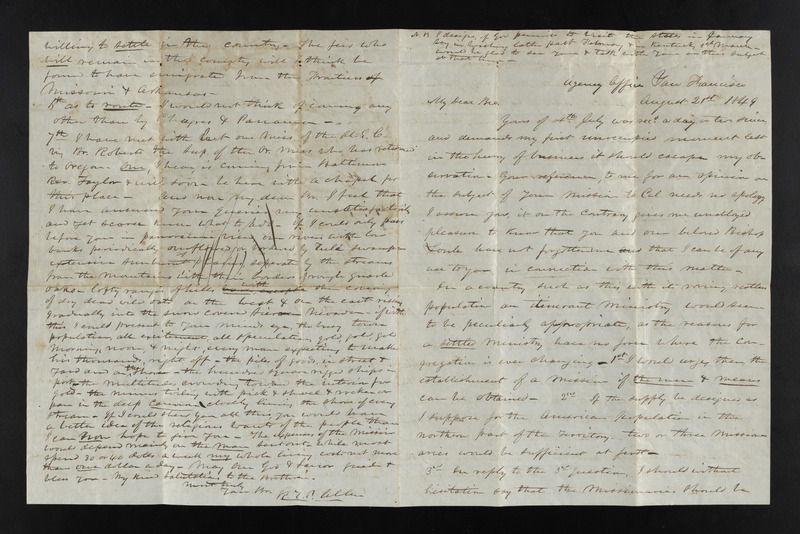 willing to settle in the country. The few who
will remain in the Country will I think be
found to have emigrated from the frontiers of
Missouri & Arkansas.
6th as to route. I would not think of coming any
other than by Chagres & Panama.
7th I have met with but one Miss. of the M. E. C.
viz Br. Roberts the Sup. of the Or. Miss. who has returned
to Oregon. One, I hear is coming from Baltimore
Rev. Taylor & will soon be here with a chapel for
this place. and now my dear Br. I feel that
I have answered your queries very unsatisfactorily
and yet scarce know what to add. If I could only pass
before your
from the mountains with their borders
oaks lofty ranges of hills with the covering
of dry dead wild oats on the west & on the east rising
gradually into the snow covered Sierra Nevada. if with
this I could present to your mind's eye, the busy town
population, all excitement, all speculation, gold, gold, gold
morning, noon & night, every man expecting to make
his thousands, right off. the piles of goods in street &
yard and on shore. the hundred square rigged ships in
port. the multitudes crowding toward the interior for
gold. the miners toiling with pick & shovel & rocker or
pan in the deep Cañon closely lining the shore of every
stream. If I could shew you all this you would have
a better idea of the religious wants of the people than
I can now hope to give you. The expenses of the mission
would depend mainly on the man sent out. While most
spend 30 or 40 dolls a week my whole living costs not more
than one dollar a day. May our God & Savior guide &
bless you. My kind salutations to the Brethren.
most truly
Your Br.
N. B. I design if God permits to visit the States in January
would be glad to see you & talk with you on this subject
at that time.
Agency Office San Francisco
August 21st 1849
My Dear Bro.
Yours of 4th July was recd a day or two since
and demands my first unoccupied moment lest
in the hurry of business it should escape my ob-
servation. Your reference, to me for an opinion on
the subject of your Mission to Cal. needs no apology
I assure you, it on the Contrary, gives me unalloyed
pleasure to know that you and our beloved Bishop
Soule have not forgotten me and that I can be of any
use to you in connection with this matter.
In a country such as this with its roving restless
population an itinerant Ministry would seem
to be peculiarly appropriate, as the reasons for
a settled Ministry have no force where the Con-
gregation is ever changing. 1st I would urge then the
establishment of a Mission if the men & means
can be obtained. 2nd If the supply be designed as
I suppose for the American population in the
northern part of the Territory. two or three Mission-
aries would be sufficient at first.
3rd In reply to the 3rd question, I should without
hesitation say that the Missionaries should be